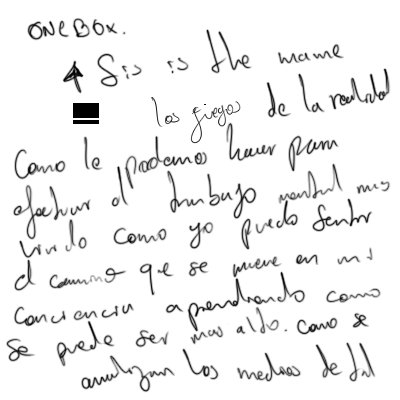 ONE BOX.
Sis is the mame
los juegos de la realidad
Como le podemos hacer para
efectuar el trabajo mental mas
vivido como yo puedo sentir
el camino que se mueve en mi
conciencia aprendiendo como
se puede ser mas alto. como se
analizan los medios de tal